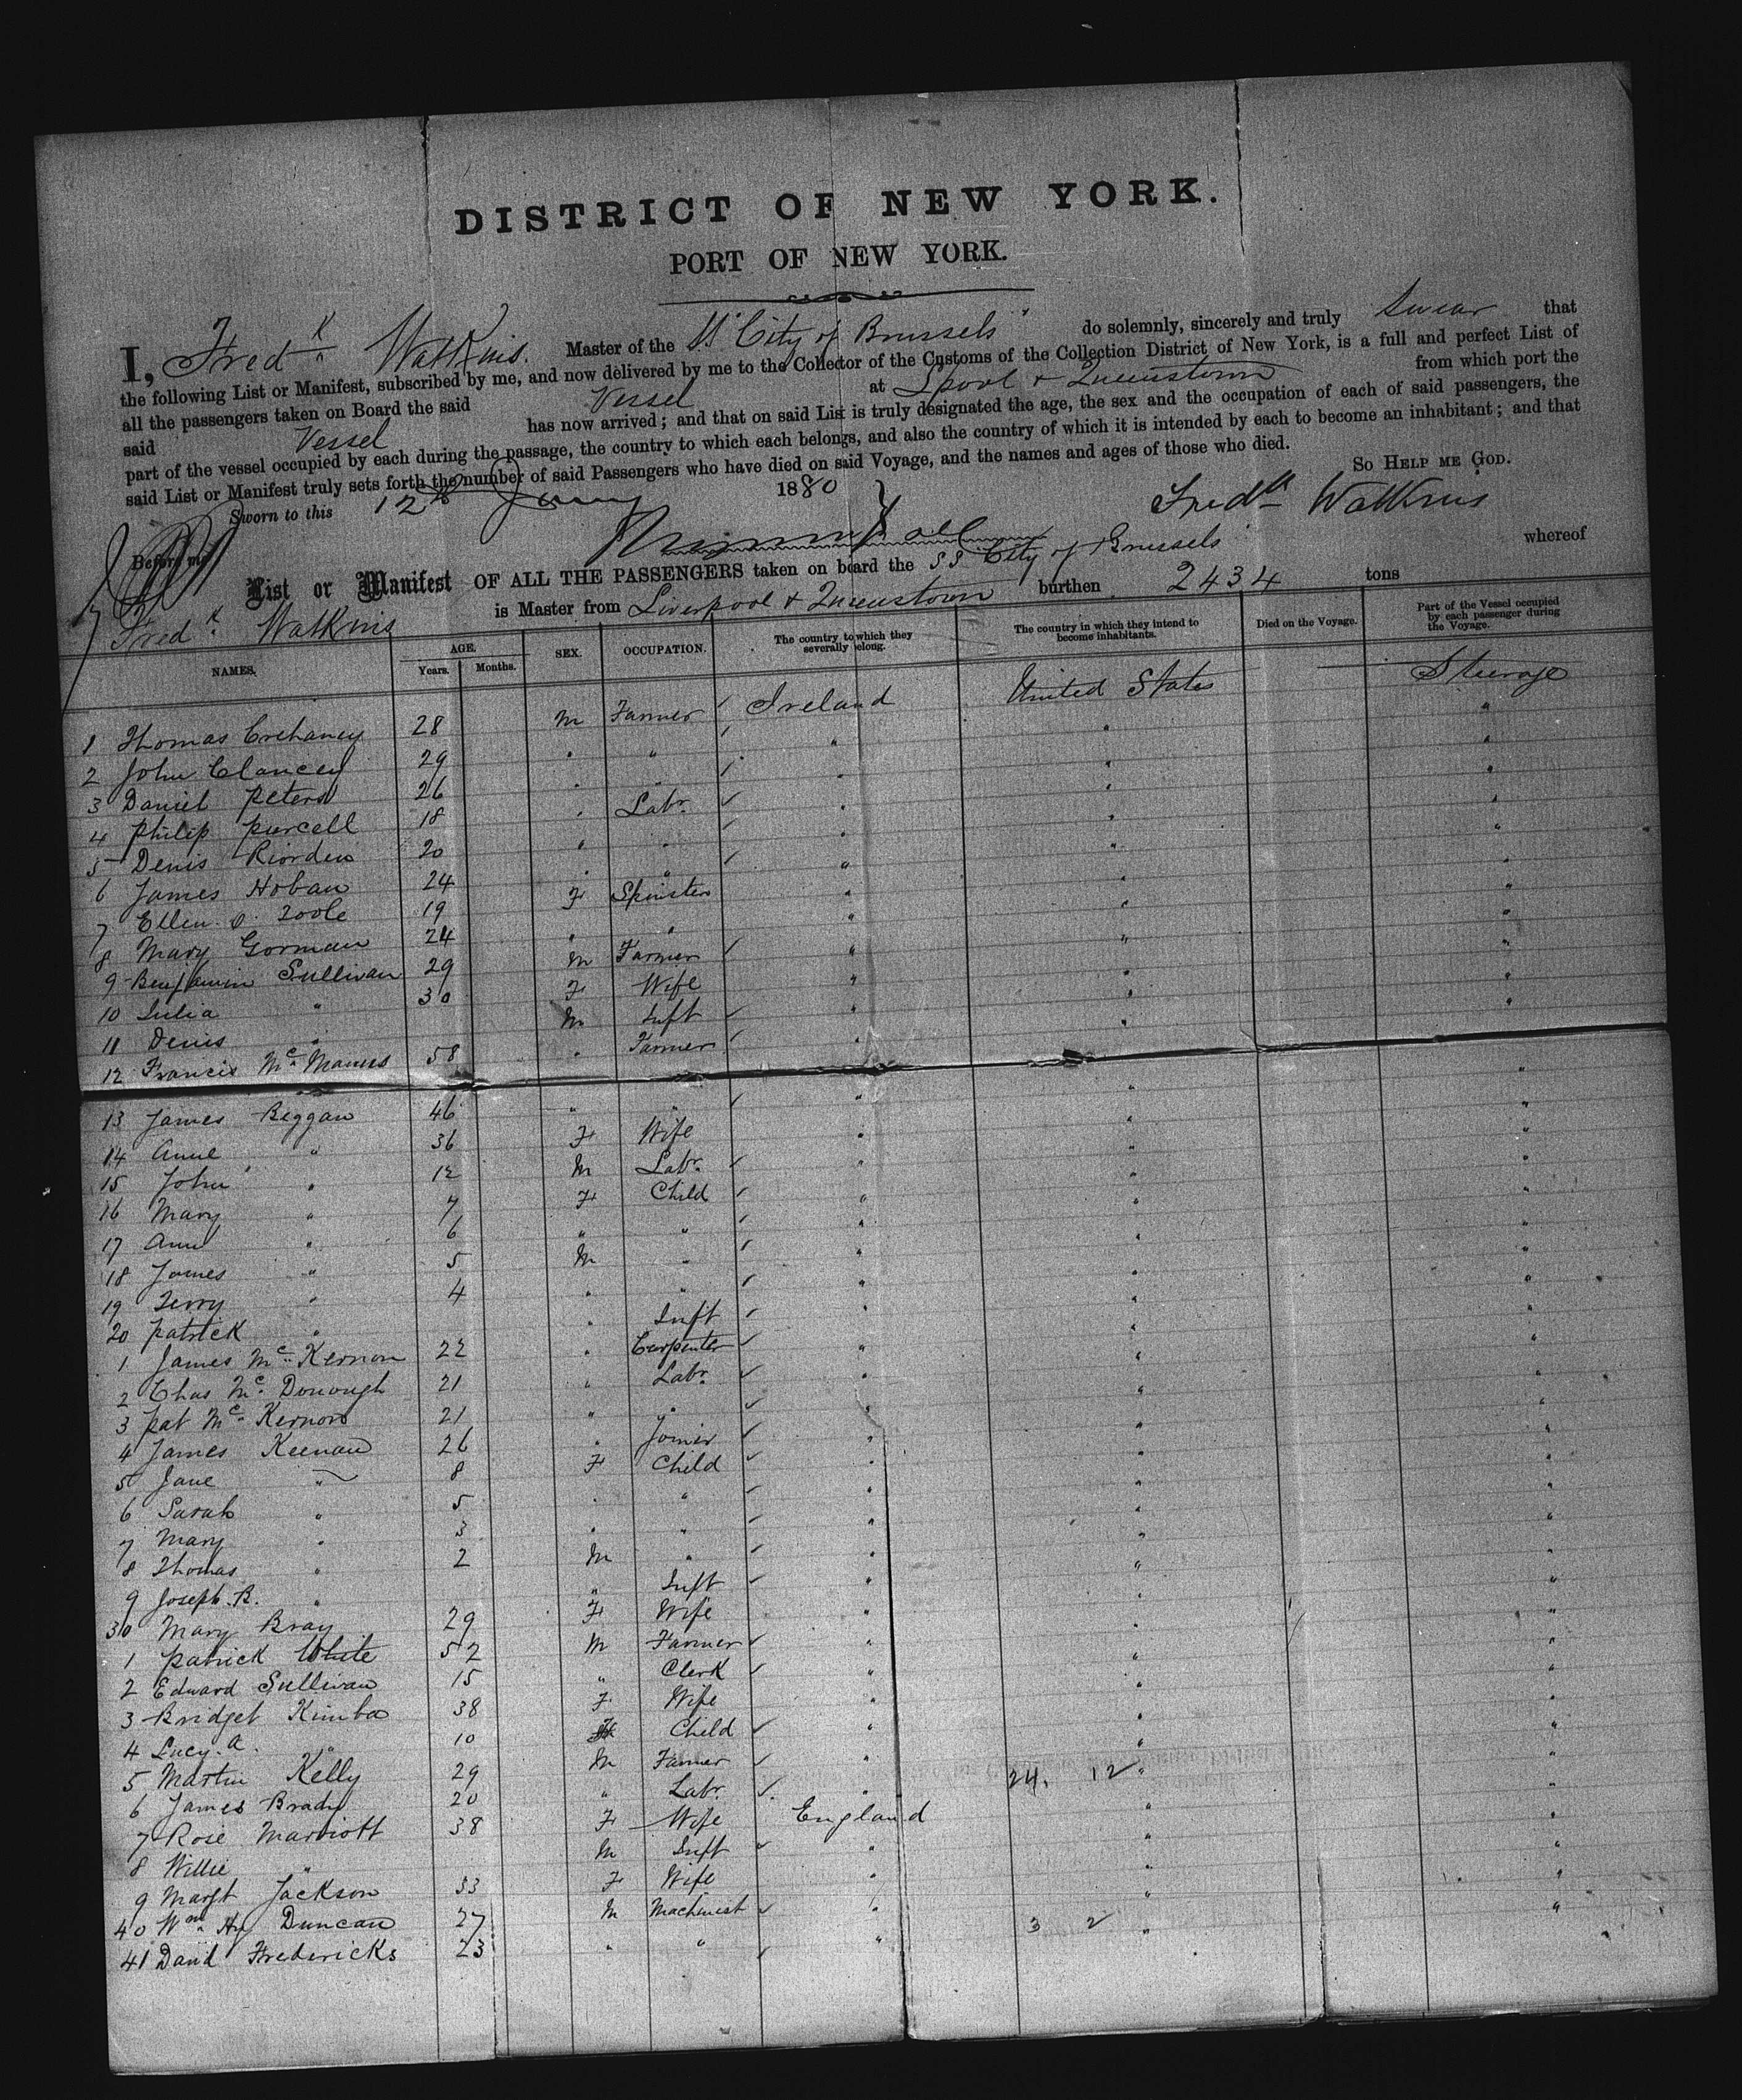 DISTRICT OF NEW YORK.
PORT OF NEW YORK.
I, Fredk Watkins. Master of the SS "City of Brussels" do solemnly, sincerely and truly swear that
the following List or Manifest, subscribed by me, and now delivered by me to the Collector of the Customs of the Collection District of New York, is a full and perfect List of
all the passengers taken on Board the said Vessel at Lpool & Queenstown from which port the
said Vessel has now arrived; and that on said List is truly designated the age, the sex and the occupation of each of said passengers, the
part of the vessel occupied by each during the passage, the country to which each belongs, and also the country of which it is intended by each to become an inhabitant; and that
said List or Manifest truly sets forth the number of said Passengers who have died on said Voyage, and the names and ages of those who died.
So HELP ME GOD.
Sworn to this 12th Jany 1880 Fredk Watkins
Before me
List or Manifest OF ALL THE PASSENGERS taken on board the SS City of Brussels whereof
Fredk Watkins is Master from Liverpool & Queenstown burthen 2434 tons
NAMES. AGE. Years. Months. SEX. OCCUPATION. The country to which they severally belong. The country in which they intend to become inhabitants. Died on the Voyage. Part of the Vessel occupied by each passenger during the Voyage.
1 Thomas Crehaney 28 M Farmer Ireland United States Steerage
2 John Clancey 29 " " " " "
3 Daniel Peters 26 " " " " "
4 Philip Purcell 18 " Labr. " " "
5 Denis Riorden 20 " " " " "
6 James Hoban 24 " " " " "
7 Ellen O. Toole 19 F Spinster " " "
8 Mary Gorman 24 " " " " "
9 Benjamin Sullivan 29 M Farmer " " "
10 Julia " 30 F Wife " " "
11 Denis " M Inft " " "
12 Francis McManus 58 " Farmer " " "
13 James Beggan 46 " " " " "
14 Anne " 36 F Wife " " "
15 John " 12 M Labr. " " "
16 Mary " 7 F Child " " "
17 Ann " 6 " " " " "
18 James " 5 M " " " "
19 Terry " 4 " " " " "
20 Patrick " " Inft " " "
1 James McKernon 22 " Carpenter " " "
2 Chas McDonough 21 " Labr. " " "
3 Pat McKernon 21 " " " " "
4 James Keenan 26 " Joiner " " "
5 Jane " 8 F Child " " "
6 Sarah " 5 " " " " "
7 Mary " 3 " " " " "
8 Thomas " 2 M " " " "
9 Joseph. R. " " Inft " " "
30 Mary Bray 29 F Wife " " "
1 Patrick White 52 M Farmer " " "
2 Edward Sullivan 15 " Clerk " " "
3 Bridget Kimba 38 F Wife " " "
4 Lucy. A. " 10 F Child " " "
5 Martin Kelly 29 M Farmer " " "
6 James Brady 20 " Labr. " 24. 12 " "
7 Rose Marriott 38 F Wife England " "
8 Willie " M Inft " " "
9 Margt Jackson 33 F Wife " " "
40 Wm Hy Duncan 27 M Machinist " " "
41 David Fredericks 23 " " " 3 2 " "